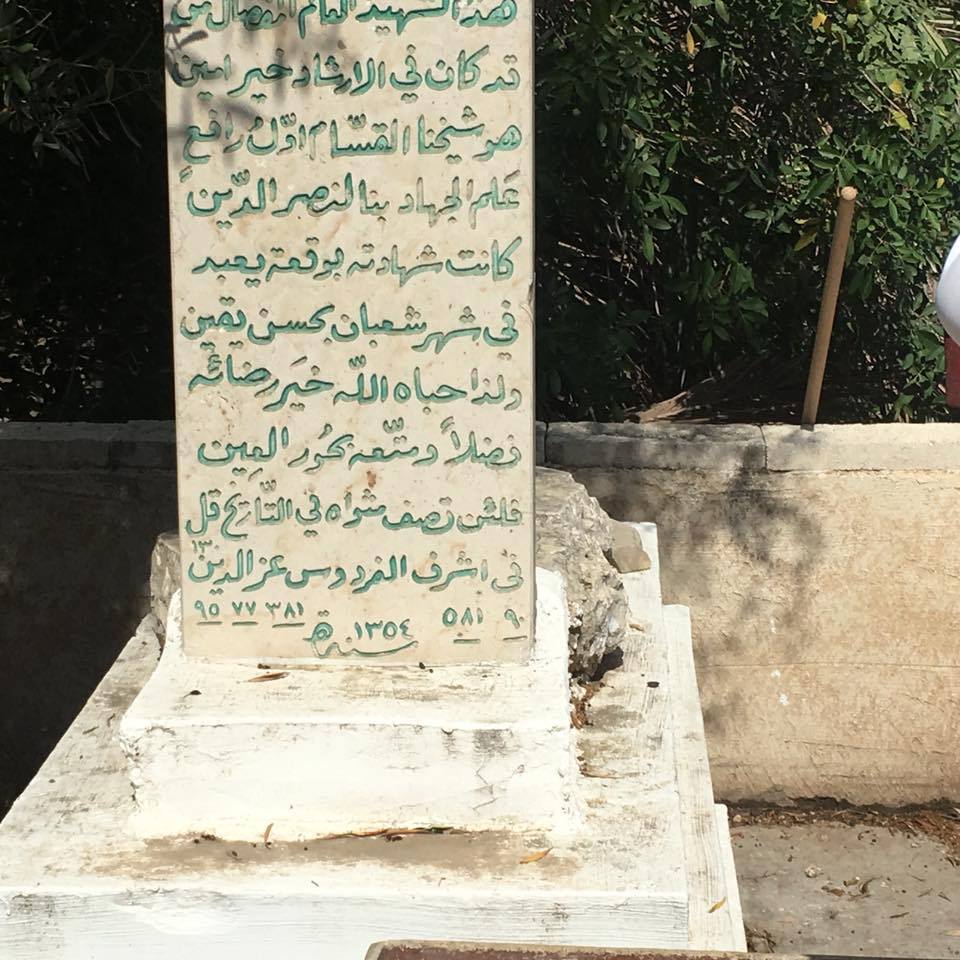 هذا الشهيد العالم المفضال من
قد كان في الارشاد خير امين
هو شيخنا القسّام اوّل رافعٍ
عَلم الجهاد بنا لنصر الدّين
كانت شهادته بوقعة يعبد
في شهر شعبان بحسن يقين
ولذا حباه اللّه خيَر رضائه
فضلاً ومتّعه بحُور العِين
فلئن تصف مثواه في التّاريخ قل
في اشرف الفردوس عز الدين
٩٠ ٥٨١ ٣٨١ ٧٧ ٩٥
سنة ١٣٥٤ ھ